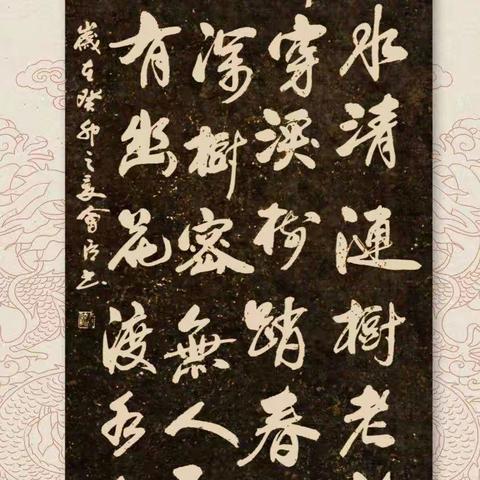 水清漣樹老
穿溪踏春
深樹密無人
有幽花渡水
歲在癸卯之夏會書